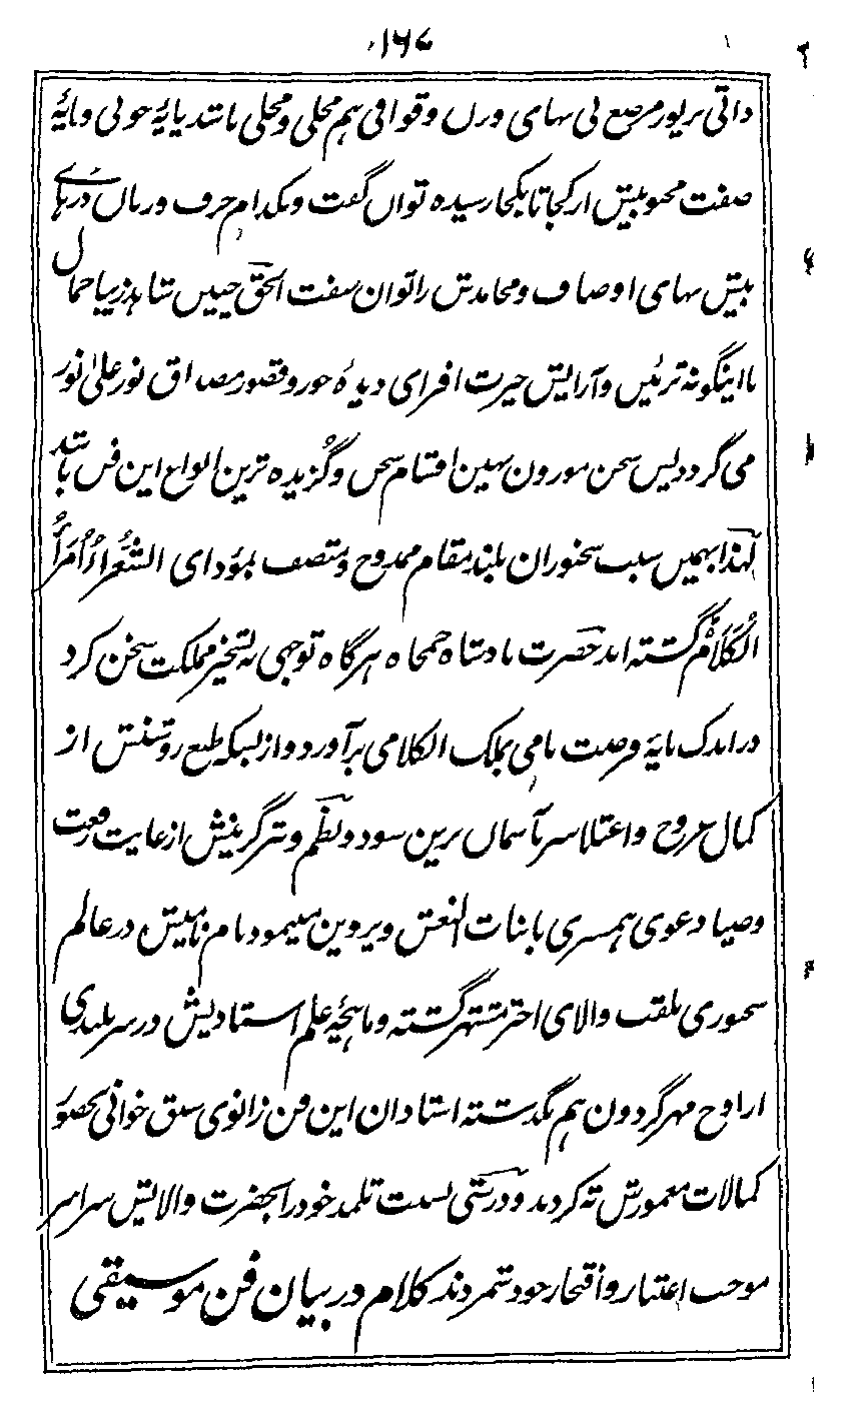 ۱۶۷
ذاتی بزیور مرصع بی بهای وزن و قوافی هم محلی و مجلی باشد پایهٔ خوبی و مایهٔ
صفت محبوبیتش از کجا تا بکجا رسیده توان گفت و بکدام حرف و زبان درهای
بیش بهای اوصاف و محامدش را توان سفت الحق چنین شاهد زیبا جمال
با اینگونه تزئین و آرایش حیرت افزای دیدهٔ حور و قصور مصداق نور علی نور
می گردد پس سخن موزون بهین اقسام سخن و گزیده ترین انواع این فن باشد
لهذا بهمین سبب سخنوران بلند مقام ممدوح و متصف بمؤدای الشُّعَراءُ اُمَراءُ
الْکَلَامُ گشته اند حضرت بادشاه جمجاه هرگاه توجهی به تسخیر مملکت سخن کرد
در اندک مایهٔ فرصت نامی بملک الکلامی برآورد و از بسکه طبع روشنش از
کمال عروج و اعتلا سر بآسمان برین سود و نظم و نثر گزینش از غایت رفعت
و ضیا دعوی همسری با بنات النعش و پروین مینمود نام نامیش در عالم
سخنوری بلقب والای اختر مشتهر گشته و ماهچهٔ علم استادیش در سربلندی
از اوج مهر گردون هم بگذشته استادان این فن زانوی سبق خوانی بحضور
کمالات معمورش ته کردند و درستی نسبت تلمذ خود را بحضرت والایش سراسر
موجب اعتبار و افتخار خود شمردند کلام در بیان فن موسیقی